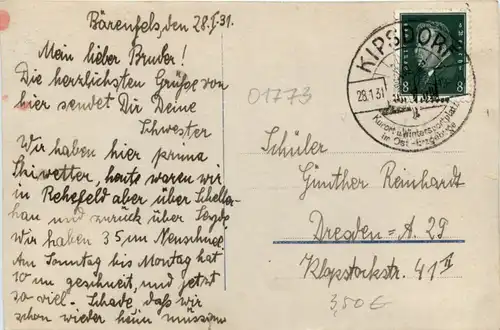 Bärenfels, den 28.I.31.
Mein lieber Bruder!
Die herzlichsten Grüße von
hier sendet Dir Deine
Schwester
Wir haben hier prima
Skiwetter, heute waren wir
in Rehefeld aber über Scheller-
hau und zurück über
Wir haben 35 cm Neuschnee
Am Sonntag bis Montag hat
10 cm geschneit, und jetzt
so viel. Schade, daß wir
schon wieder heim müssen
01773
KIPSDORF
28.1.31
Kurort u. Wintersportplatz
im Ost-Erzgebirge
8 8
Schüler
Günther Reinhardt
Dresden=A. 29
Klopstockstr. 41 II
3,50 €